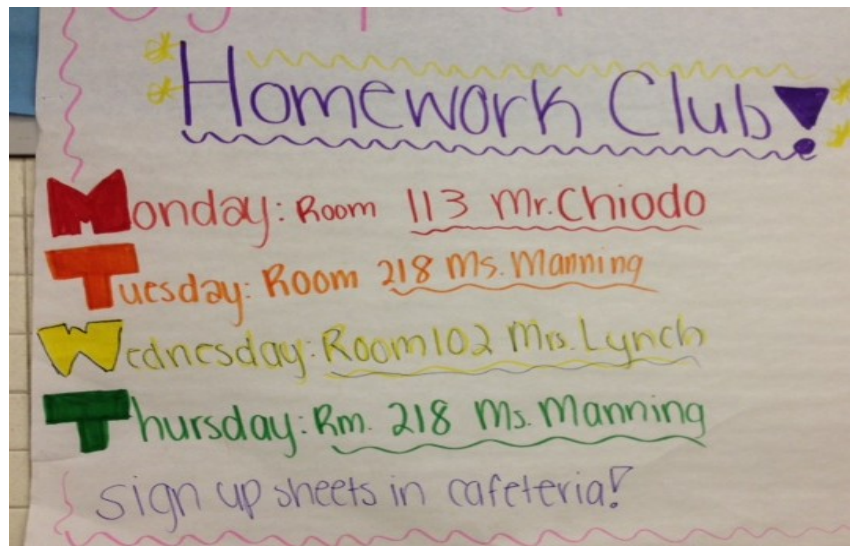 Homework Club!
Monday: Room 113 Mr. Chiodo
Tuesday: Room 218 Ms. Manning
Wednesday: Room 102 Mrs. Lynch
Thursday: Rm. 218 Ms. Manning
sign up sheets in cafeteria!